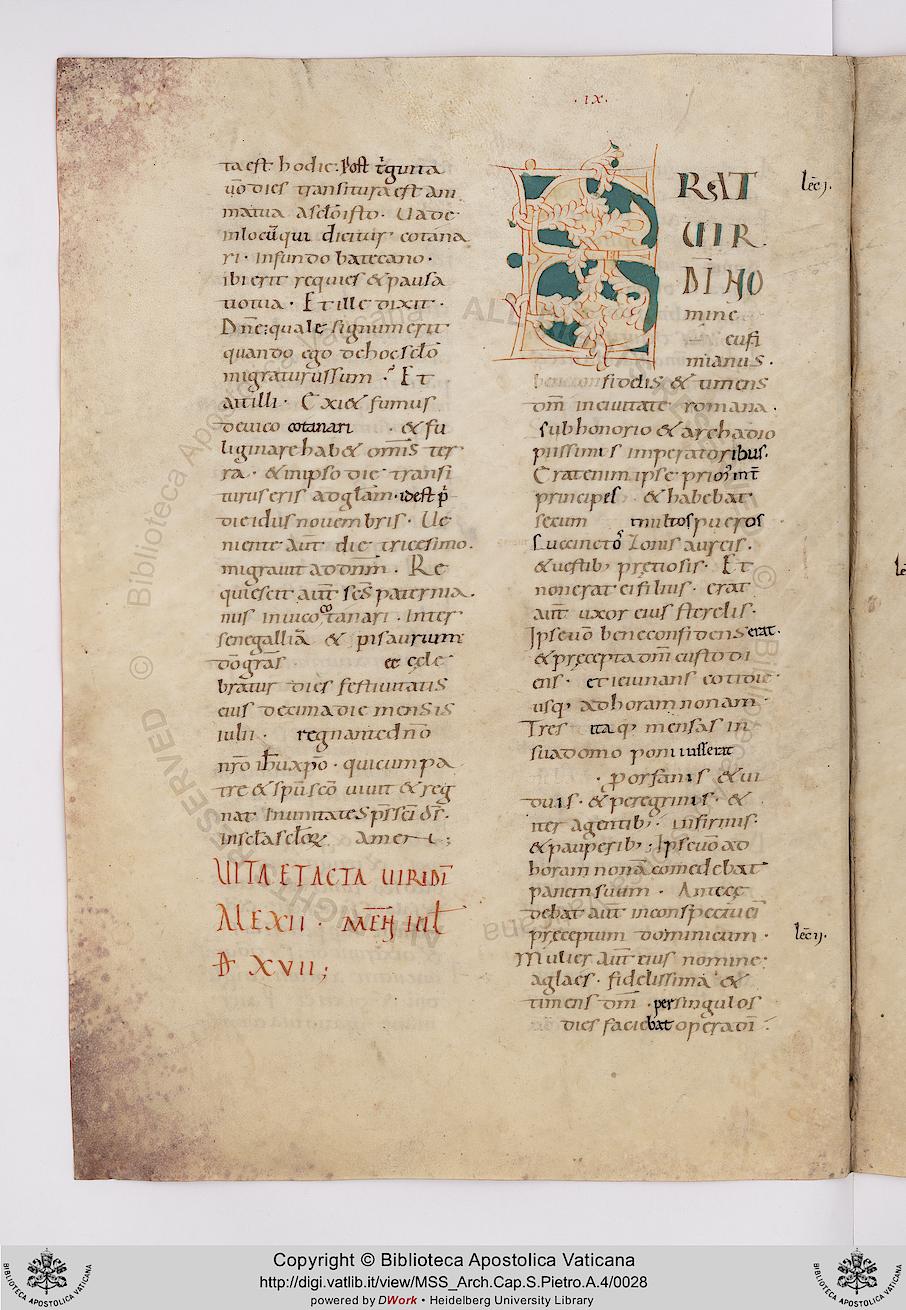 .IX.
ta est hodie. Post t'ginta
uō dies transitura est ani
ma tua a sclō isto. Uade
in locū qui dicitur cotana
ri. in fundo batecano.
ibi erit requies & pausa
uotiua. Et ille dixit.
Dn̄e. quale signum erit
quando ego de hoc sclō
migraturus sum. Et
ait illi. Exi & fumus
de uico cotanari & fu
ligina rehab& om̄is ter
ra. & in ipso die transi
turus eris ad glām. id est p̄
die idus nouembris. Ue
niente aūt die tricesimo.
migrauit ad dnm̄. Re
quiescit aūt scs̄ paternia
nus in uico cotanari. Inter
senegalliā & pisaurum
dō grās ee cele
bratur dies festiuitatis
eius decima die mensis
iulii. regnante dn̄o
nr̄o ih̄u xp̄o. qui cum pa
tre & spū scō uiuit & reg
nat In unitate sp̄s sci d̄s.
in scla sclor̄. amen;
UITA ET ACTA UIRI DI
ALEXII. MEN IUL
D XVII;
ERAT
UIR
DI NO
mine
eufi
mianus.
bene confidens & timens
dm̄ in ciuitate romana.
sub honorio & archadio
piissimis imperatoribus.
Erat enim ipse prior int̄
principes & habebat
secum multos pueros
succinctos zonis aureis.
& uestib; pretiosis. Et
non erat ei filius. erat
aūt uxor eius sterelis.
Ipse uō bene confidens erat.
& precepta dn̄i custodi
ens. et ieiunans cotidie
usq; ad horam nonam.
Tres itaq; mensas in
sua domo poni iusserat
. p orfanis & ui
duis. & peregrinis. &
iter agentib; . infirmis.
& pauperib; . Ipse uō ad
horam nonā comedebat
panem suum. Antece
debat aūt in conspectu ei
preceptum dominicum.
Mulier aūt eius nomine
aglaes. fidelissima & 
timens dm̄. per singulos
dies faciebat opera dī.
lec̄ j.
lec̄ ij.
Copyright © Biblioteca Apostolica Vaticana
http://digi.vatlib.it/view/MSS_Arch.Cap.S.Pietro.A.4/0028
powered by DWork • Heidelberg University Library
BIBLIOTECA APOSTOLICA VATICANA
BIBLIOTECA APOSTOLICA VATICANA